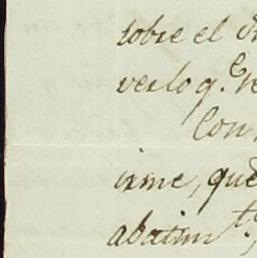 sobre el
verlo q.e
Con
irme, que
abatim.to,